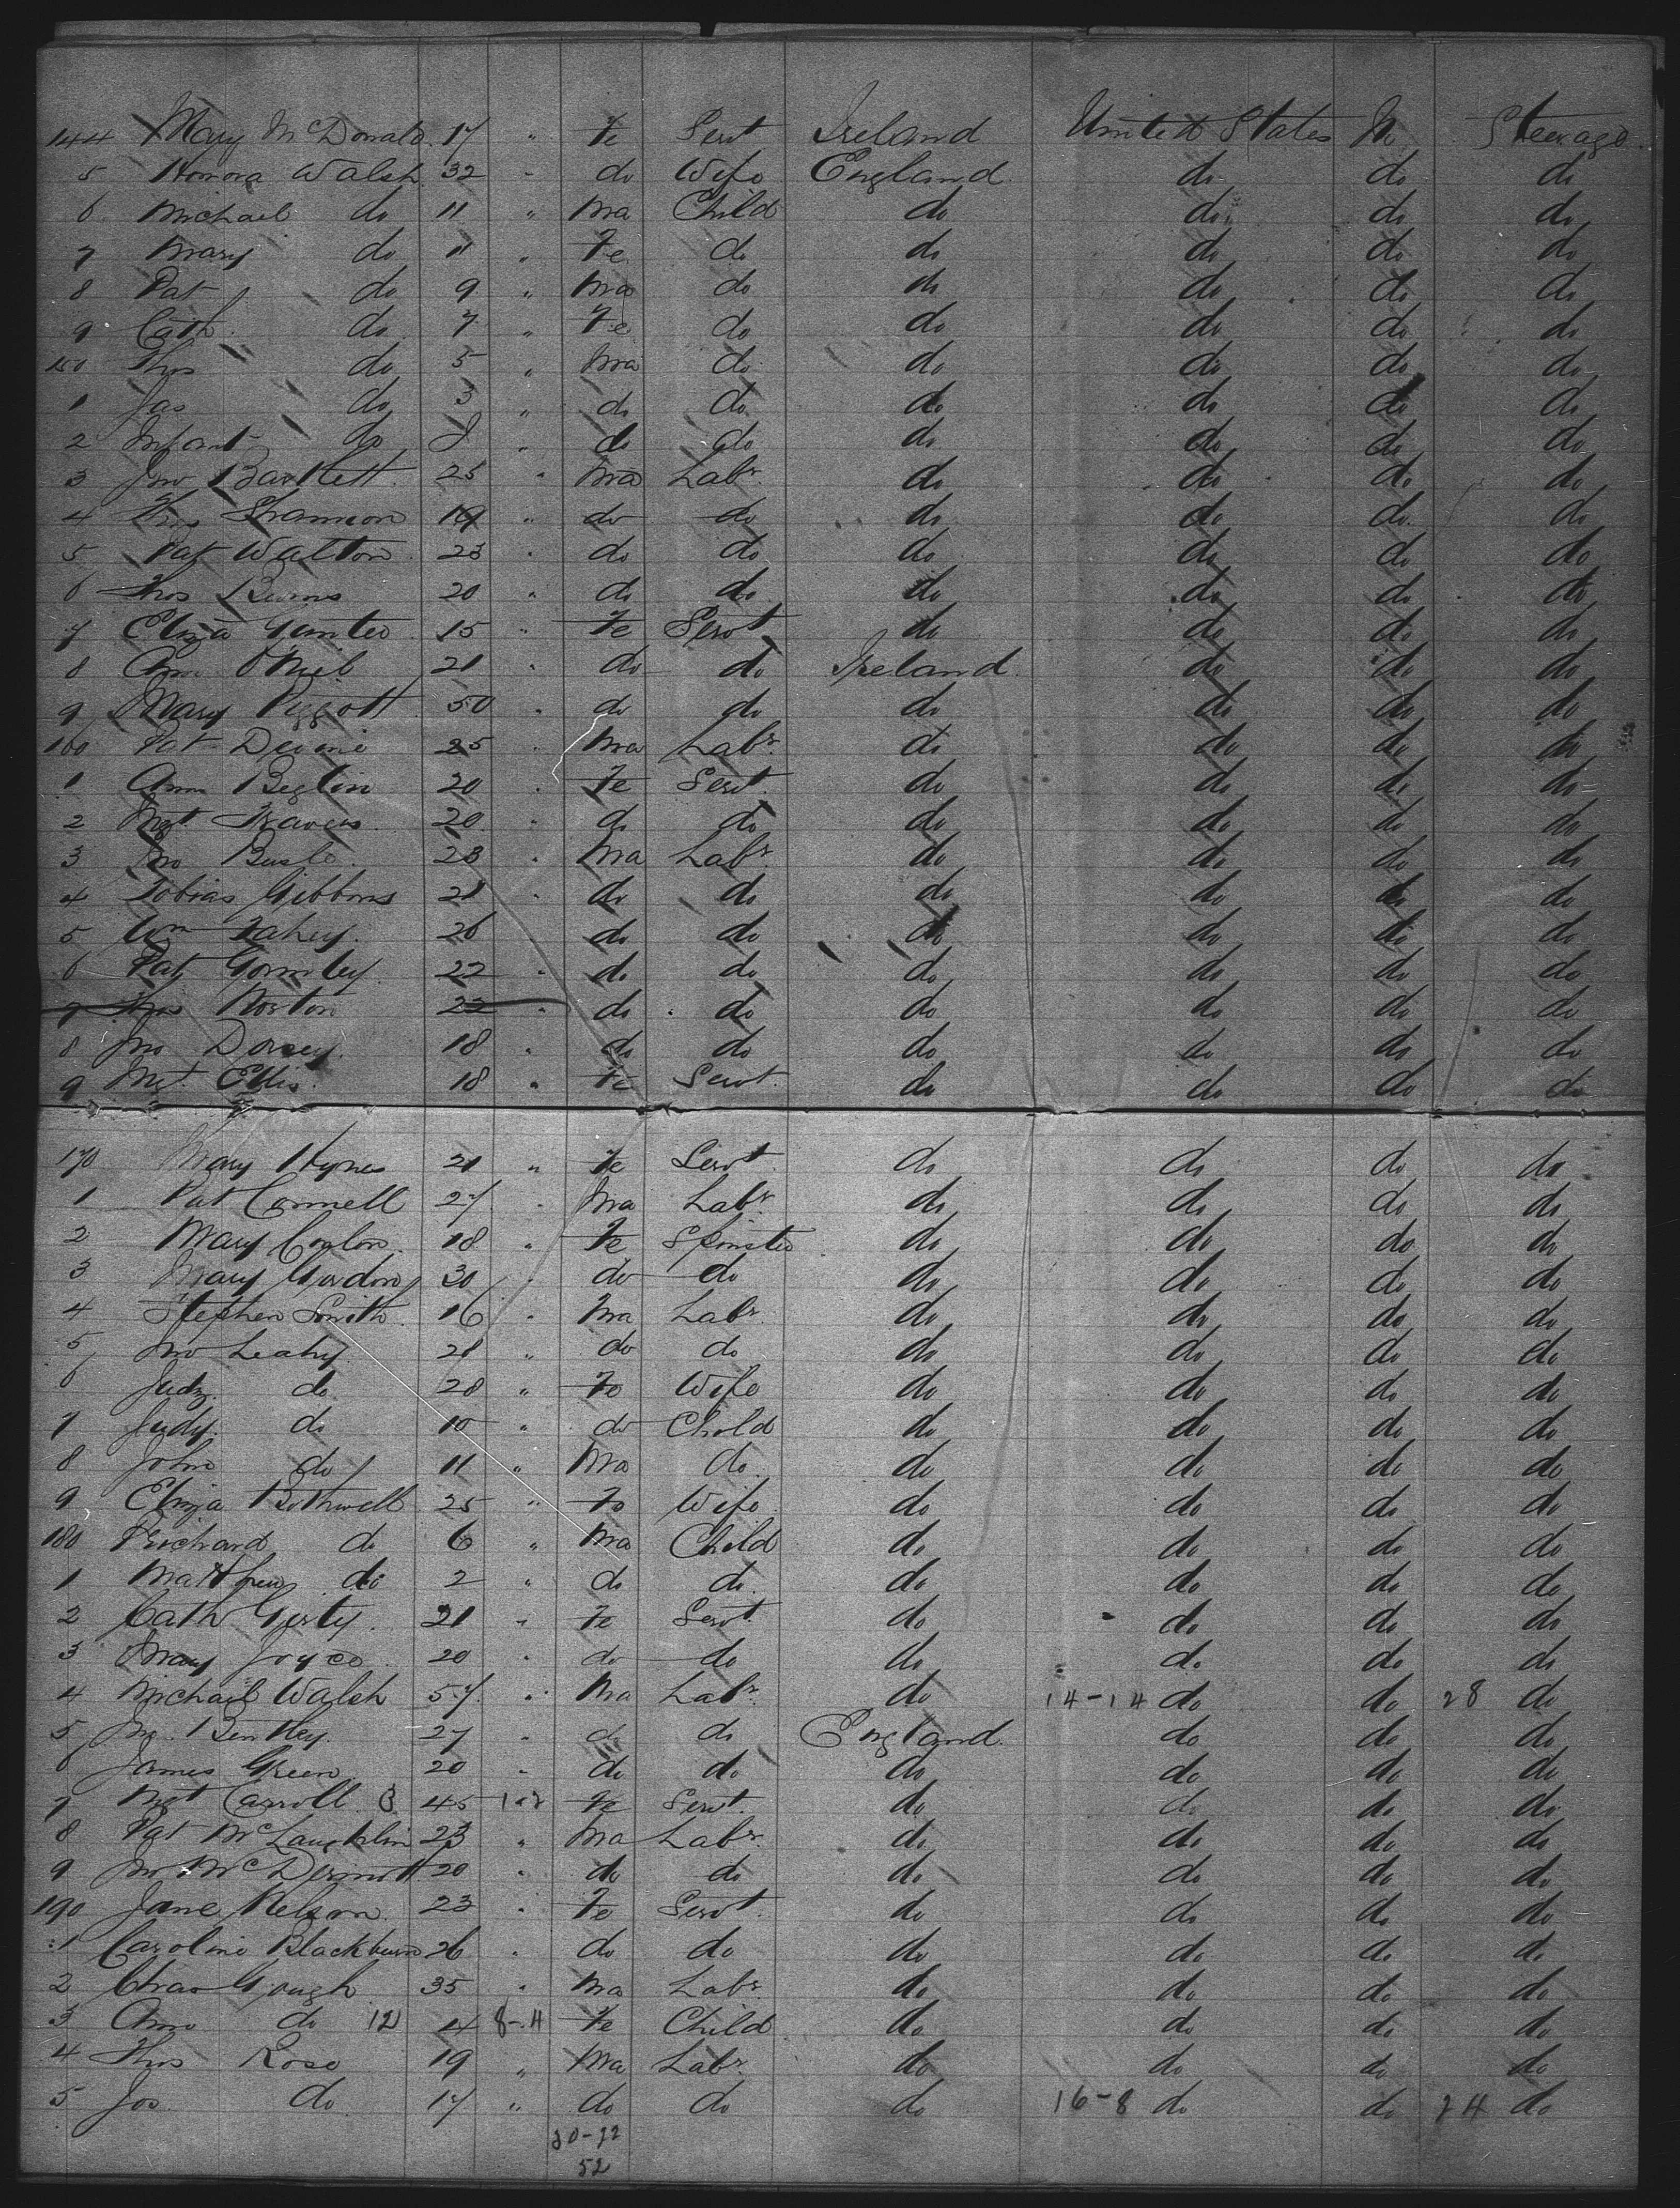 144 Mary McDonald 17 " Fe Servt Ireland United States No Steerage
5 Honora Walsh 32 " do Wife England do do do
6 Michael do 11 " Ma Child do do do do
7 Mary do 11 " Fe do do do do do
8 Pat do 9 " Ma do do do do do
9 Cath do 7 " Fe do do do do do
150 Thos do 5 " Ma do do do do do
1 Jas do 3 " do do do do do do
2 Infant do " do do do do do do
3 Jno Bartlett 25 " Ma Labr do do do do
4 Thos Shannon 19 " do do do do do do
5 Pat Walton 23 " do do do do do do
6 Thos Burns 20 " do do do do do do
7 Eliza 15 " Fe Servt do do do do
8 Ann O'Neil 21 " do do Ireland do do do
9 Mary Piggott 50 " do do do do do do
160 Pat Devine 25 " Ma Labr do do do do
1 Ann Beglin 20 " Fe Servt do do do do
2 Mgt Travers 20 " do do do do do do
3 Jno 23 " Ma Labr do do do do
4 Tobias Gibbons 21 " do do do do do do
5 Wm Fahey 26 " do do do do do do
6 Pat Gormley 22 " do do do do do do
7 Thos Norton 22 " do do do do do do
8 Jno Dorsey 18 " do do do do do do
9 Mgt Ellis 18 " Fe Servt do do do do
170 Mary Hynes 21 " Fe Servt do do do do
1 Pat Connell 27 " Ma Labr do do do do
2 Mary Conlon 18 " Fe Spinster do do do do
3 Mary Gordon 30 " do do do do do do
4 Stephen Smith 16 " Ma Labr do do do do
5 Jno Leahy 28 " do do do do do do
6 Judy do 28 " Fe Wife do do do do
7 Judy do 10 " do Child do do do do
8 John do 11 " Ma do do do do do
9 Eliza Bothwell 25 " Fe Wife do do do do
180 Richard do 6 " Ma Child do do do do
1 Matthew do 2 " do do do do do do
2 Cath Gerty 21 " Fe Servt do do do do
3 Mary Joyce 20 " do do do do do do
4 Michael Walsh 57 " Ma Labr do 14-14 do do 28 do
5 Jno Bentley 27 " do do England do do do
6 James Green 20 " do do do do do do
7 Mgt Carroll 3 45 1-2 Fe Servt do do do do
8 Pat McLaughlin 23 " Ma Labr do do do do
9 Jno McDermott 20 " do do do do do do
190 Jane Nelson 23 " Fe Servt do do do do
1 Caroline Blackburn 26 " do do do do do do
2 Chas Gough 35 " Ma Labr do do do do
3 Ann do 12 4 8-4 Fe Child do do do do
4 Thos Rose 19 " Ma Labr do do do do
5 Jos do 17 " do do do 16-8 do do 24 do
30-22
52